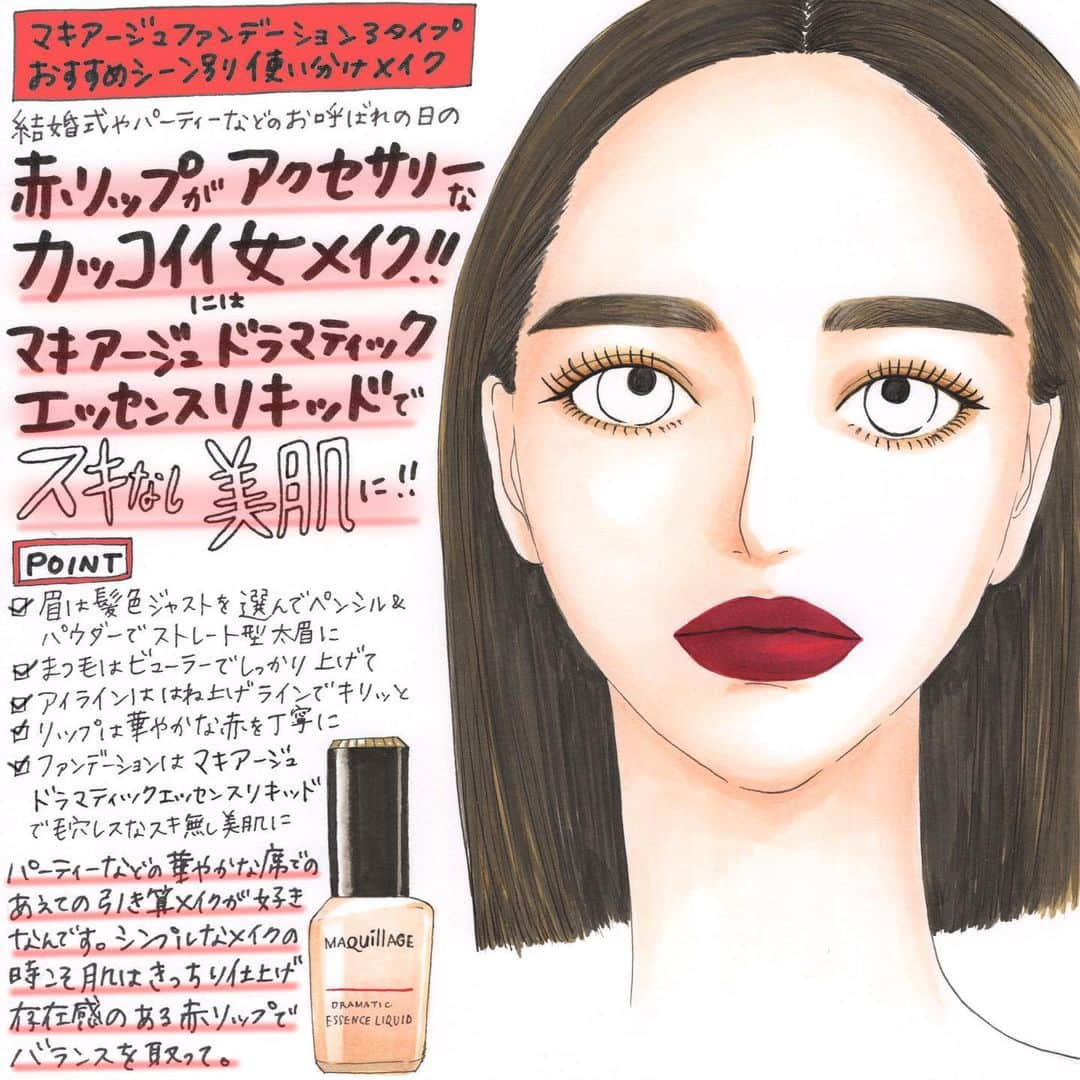 マキアージュファンデーション3タイプ
おすすめシーン別り使い分けメイク
結婚式やパーティーなどのお呼ばれの日の
赤リップがアクセサリーな
カッコイイ女メイク!!
には
マキアージュドラマティック
エッセンスリキッドで
スキなし美肌に!!
POINT
☑眉は髪色ジャストを選んでペンシル&
パウダーでストレート型太眉に
☑まつ毛はビューラーでしっかり上げて
☑アイラインははね上げラインでキリッと
☑リップは華やかな赤を丁寧に
☑ファンデーションはマキアージュ
ドラマティックエッセンスリキッド
で毛穴レスなスキ無し美肌に
パーティーなどの華やかな席での
あえての引き算メイクが好き
なんです。シンプルなメイクの
時こそ肌はきっちり仕上げ
存在感のある赤リップで
バランスを取って。
MAQuillAGE
DRAMATIC
ESSENCE LIQUID